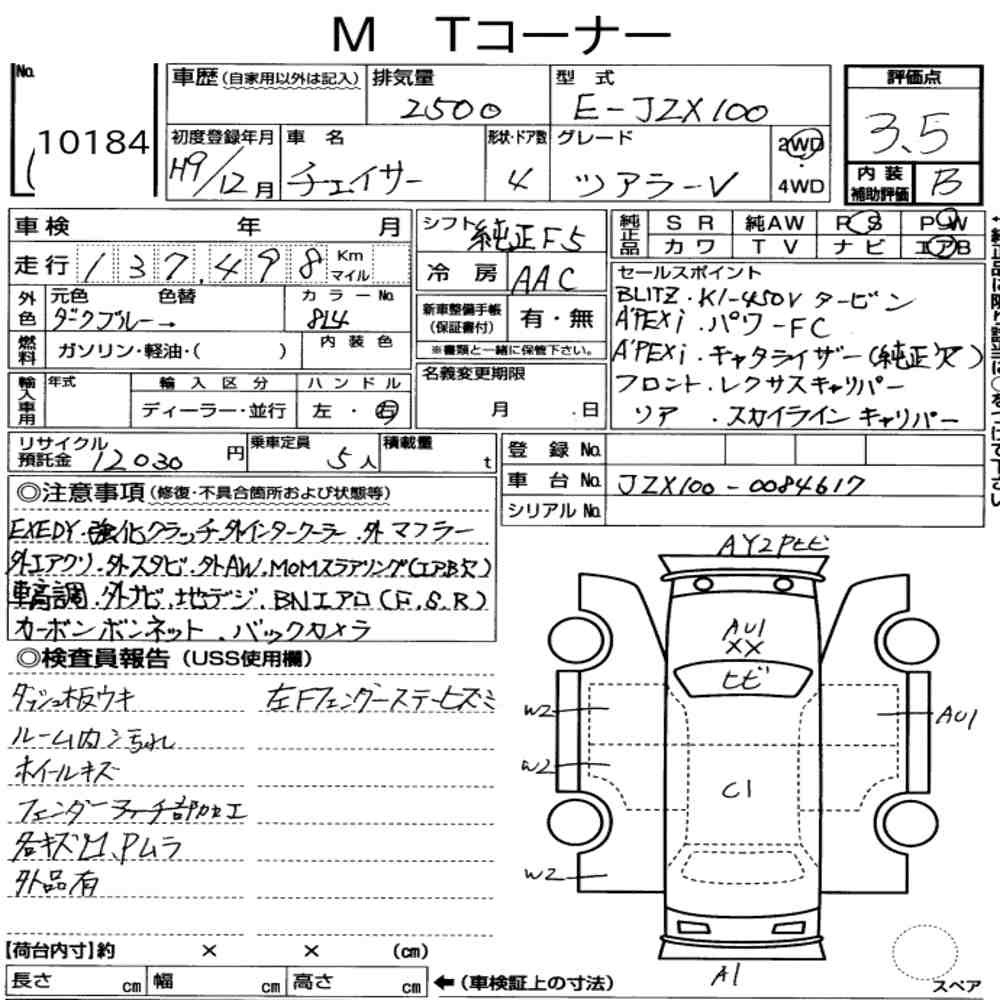 M Tコーナー
No. 10184
車歴(自家用以外は記入) 排気量 2500 型式 E-JZX100 評価点 3.5
初度登録年月 H9/12月 車名 チェイサー 形状・ドア数 4 グレード ツアラーV 2WD・4WD 内装補助評価 B
車検 年 月 シフト 純正F5 純正品 SR 純AW PS PW
カワ TV ナビ エアB
走行 137,498 Km マイル 冷房 AAC
セールスポイント
BLITZ・K1-450Vタービン
A'PEXi・パワーFC
A'PEXi・キャタライザー(純正欠)
フロント・レクサスキャリパー
リア・スカイラインキャリパー
外色 元色 色替 カラーNo.
ダークブルー→ 8L4
新車整備手帳(保証書付) 有・無
※書類と一緒に保管下さい。
燃料 ガソリン・軽油・( ) 内装色
名義変更期限 月.日
輸入車用 年式 輸入区分 ハンドル
ディーラー・並行 左・右
リサイクル預託金 12030円 乗車定員 5人 積載量 t
登録No.
車台No. JZX100-0084617
シリアルNo.
◎注意事項(修復・不具合箇所および状態等)
EXEDY・強化クラッチ.外インタークーラー.外マフラー
外エアクリ.外スタビ.外AW.MOMステアリング(エアB欠)
車高調.外ナビ.地デジ.BNエアロ(F.S.R)
カーボンボンネット.バックカメラ
◎検査員報告(USS使用欄)
ダッシュ板ウキ 左Fフェンダーステーヒズミ
ルーム内コゲ汚れ
ホイールキズ
フェンダーアーチ部加工
各キズ凹、Pムラ
外品有
【荷台内寸】約 × × (cm)
長さ cm 幅 cm 高さ cm ←(車検証上の寸法)
AY2Pヒビ
AU1
XX
ヒビ
W2
AU1
W2
C1
W2
A1
スペア